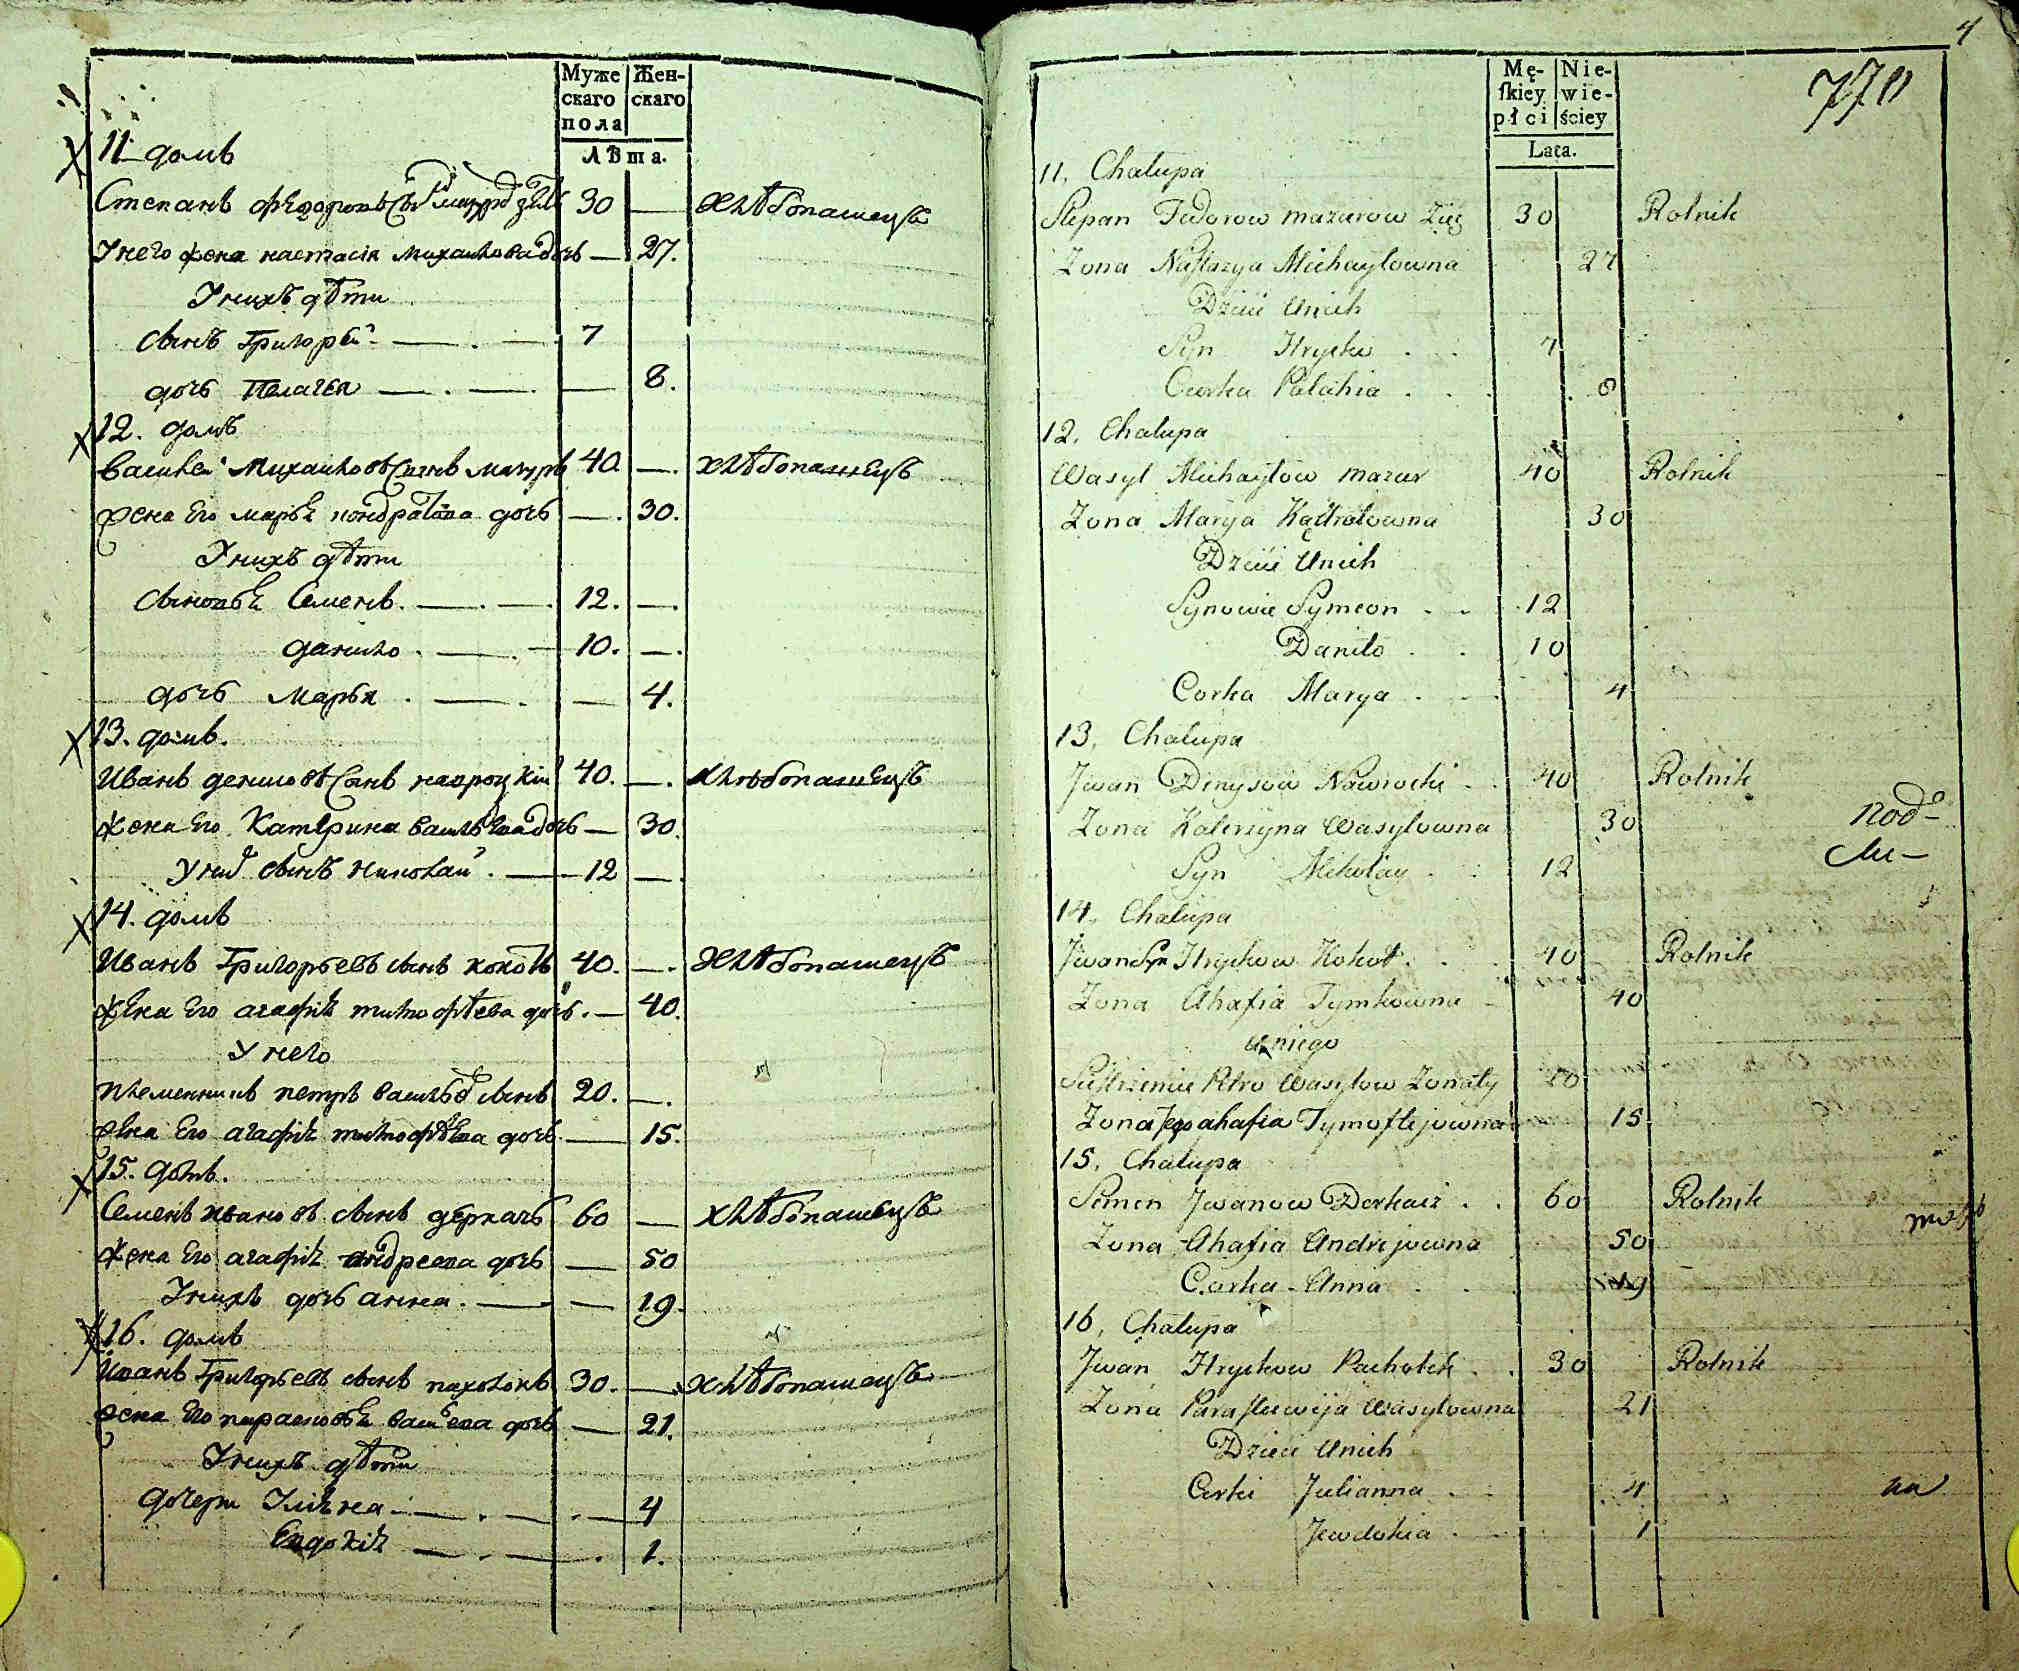 Муже Жен-
скаго скаго
пола
Лѣта.
11 домъ
Степанъ Федоровъ Сынъ мазуровъ зять 30 — хлѣбопашецъ
У него жена настасія михайлова дочь — 27.
У нихъ дѣти
сынъ Григорей — 7
дочь Пелагея — 8.
12. домъ
Василей Михайловъ Сынъ мазуръ 40 —. хлѣбопашецъ
жена его марья кондратова дочь —. 30.
У нихъ дѣти
сыновья Семенъ. —. —. 12. —.
данило. —. — 10. —.
дочь марья. —. — 4.
13. домъ.
Иванъ денисовъ Сынъ навроцкій 40. —. хлѣбопашецъ
жена его Катерина васильева дочь — 30.
У ниⷯ сынъ николай. — 12 —.
14. домъ
Иванъ Григорьевъ сынъ кокотъ 40. —. хлѣбопашецъ
жена его агафія тимофѣева дочь. — 40.
У него
племенникъ петръ васильевъ сынъ 20. —.
жена его агафія тимофѣева дочь — 15.
15. домъ.
Семенъ ивановъ сынъ деркачъ 60 — хлѣбопашецъ
жена его агафія андреева дочь — 50
У нихъ дочь анна. — — 19.
16. домъ
Иванъ Григорьевъ сынъ пахолокъ 30. — хлѣбопашецъ
жена его парасковья васильева дочь — 21.
У нихъ дѣти
дочери Уліяна —. —. — 4
Евдокія —. —. 1.
4
770
Mę- Nie-
ſkiey wie-
płci ściey
Lata.
11, Chałupa
Stepan Fedorow mazurow Zięć 30 Rolnik
Zona Nastazya Michayłowna 27
Dzieci Unich
Syn Hryćko . . 7
Curka Palahia . . . 8
12, Chałupa
Wasyl Michayłow mazur 40 Rolnik
Zona Marya Kądratowna 30
Dzieci Unich
Synowie Symeon . . 12
Daniło . . 10
Corka Marya . . . 4
13, Chałupa
Jwan Denysow Nawrocki . . 40 Rolnik
Zona Katerzyna Wasylowna 30
Syn Mikołay . . 12
Nod-
Ми-
14, Chałupa
Jwan Syn Hryćkow Kokot . . 40 Rolnik
Zona Ahafia Tymkowna 40
u niego
Siestrzeniec Petro Wasylow Zonaty 20
Zona Jego ahafia Tymoftejowna 15
15, Chałupa
Semen Jwanow Derkacz . . 60 Rolnik
Zona Ahafia Andrejowna 50
Corka Anna . . . 19
16, Chałupa
Jwan Hryćkow Pachołek . . 30 Rolnik
Zona Paraskiewija Wasylowna 21
Dzieci Unich
Curki Julianna . . 4
на
Jewdokia . . 1